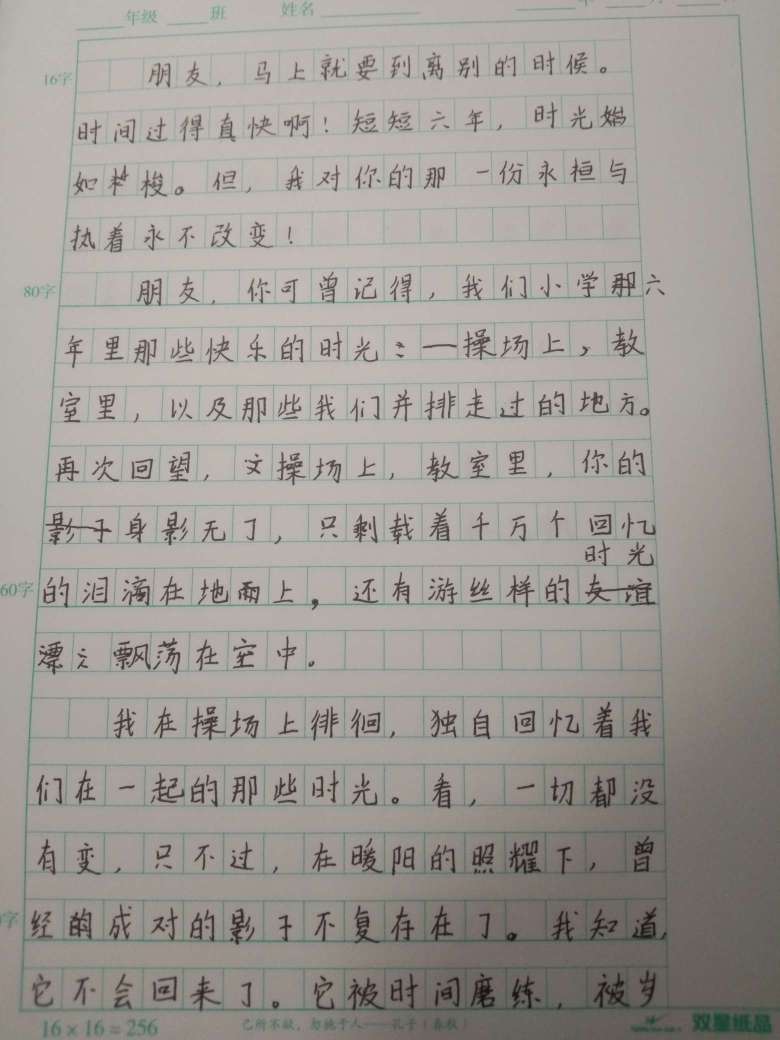 年级 班 姓名
16字
朋友,马上就要到离别的时候。
时间过得真快啊!短短六年,时光
如梭。但,我对你的那一份永桓与
执着永不改变!
80字
朋友,你可曾记得,我们小学那六
年里那些快乐的时光:一操场上,教
室里,以及那些我们并排走过的地方。
再次回望,操场上,教室里,你的
影子身影无了,只剩载着千万个回忆
时光
60字
的泪滴在地面上,还有游丝样的友谊
漂飘荡在空中。
我在操场上徘徊,独自回忆着我
们在一起的那些时光。看,一切都没
有变,只不过,在暖阳的照耀下,曾
字
经的成对的影子不复存在了。我知道,
它不会回来了。它被时间磨练,被岁
16×16=256
己所不欲,勿施于人——孔子(春秋)
双星纸品